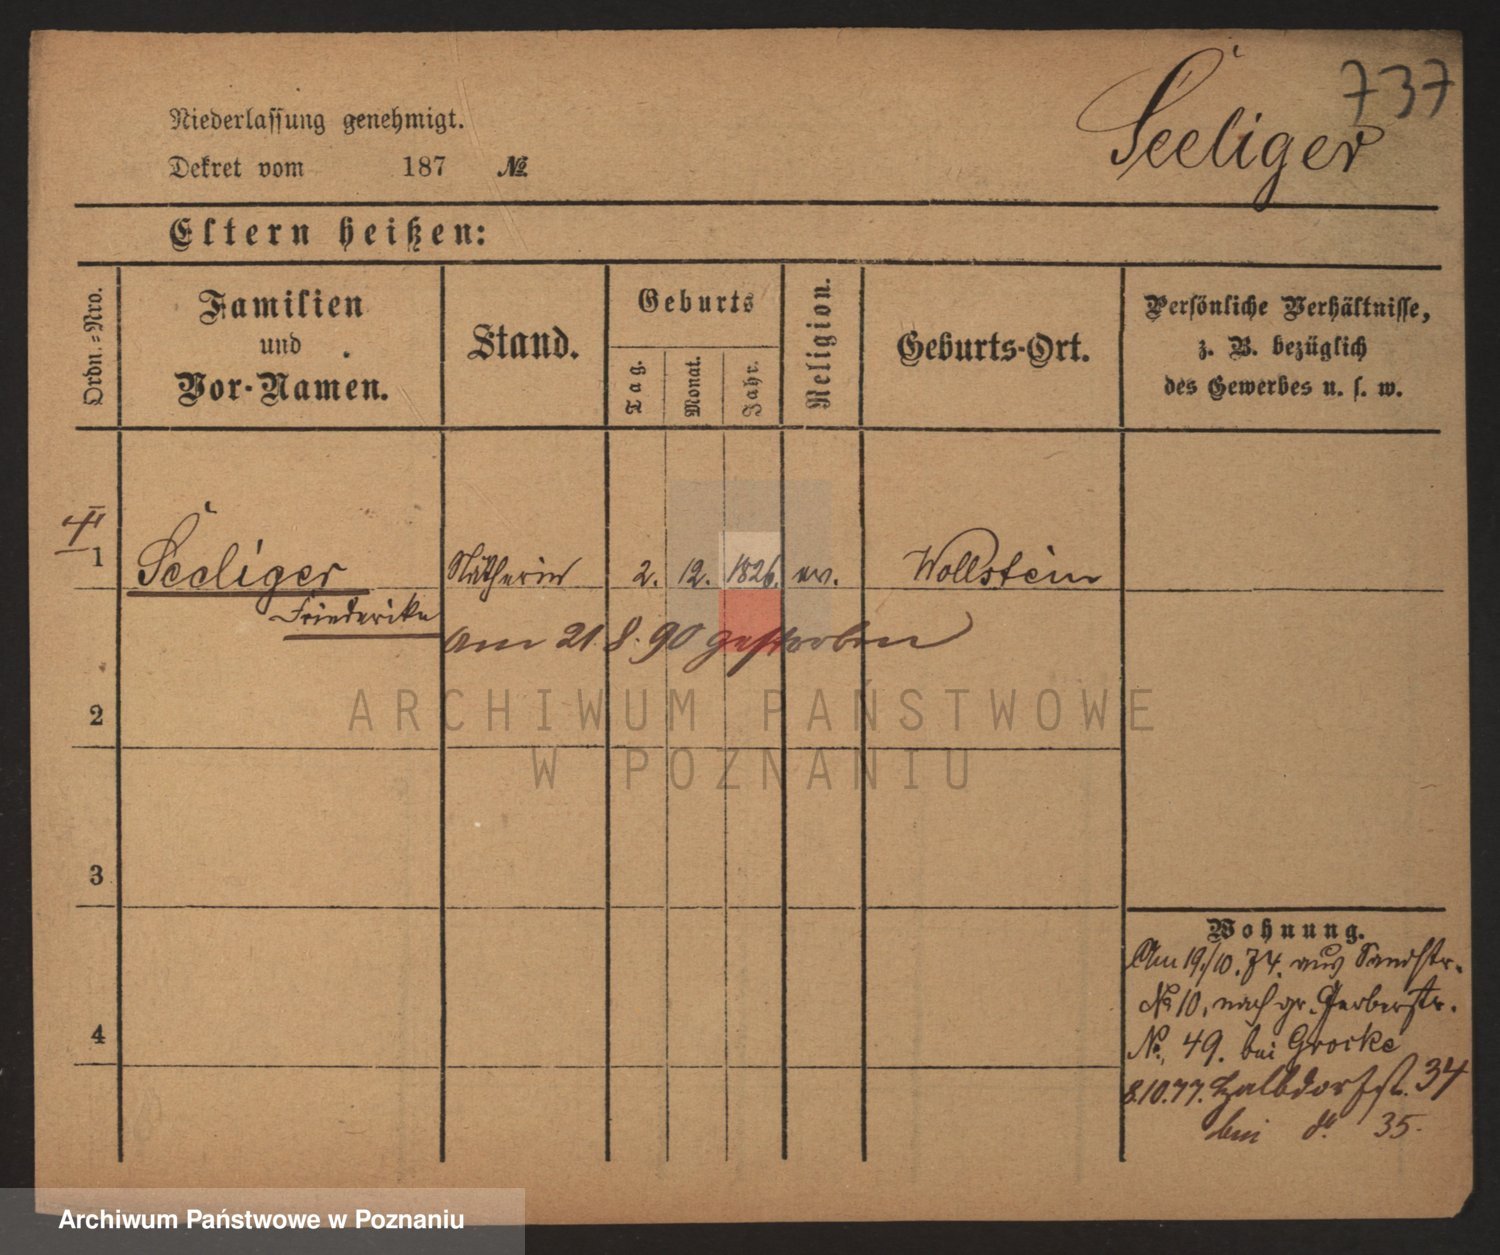 737
Seeliger
Niederlassung genehmigt.
Dekret vom 187 №
Eltern heißen:
Ordn.-Nro.
Familien
und
Vor-Namen.
Stand.
Geburts
Tag.
Monat.
Jahr.
Religion.
Geburts-Ort.
Persönliche Verhältnisse,
z. B. bezüglich
des Gewerbes u. s. w.
1 Seeliger Nätherin 2. 12. 1826. ev. Wollstein
Friederike
am 21. 8. 90 gestorben
2
3
4
Wohnung.
Am 19./10. 74. aus Sandstr.
№ 10, nach gr. Gerberstr.
№. 49. bei Grocke
8.10.77. Halbdorfst. 34
bei d° 35.
ARCHIWUM PAŃSTWOWE
W POZNANIU
Archiwum Państwowe w Poznaniu